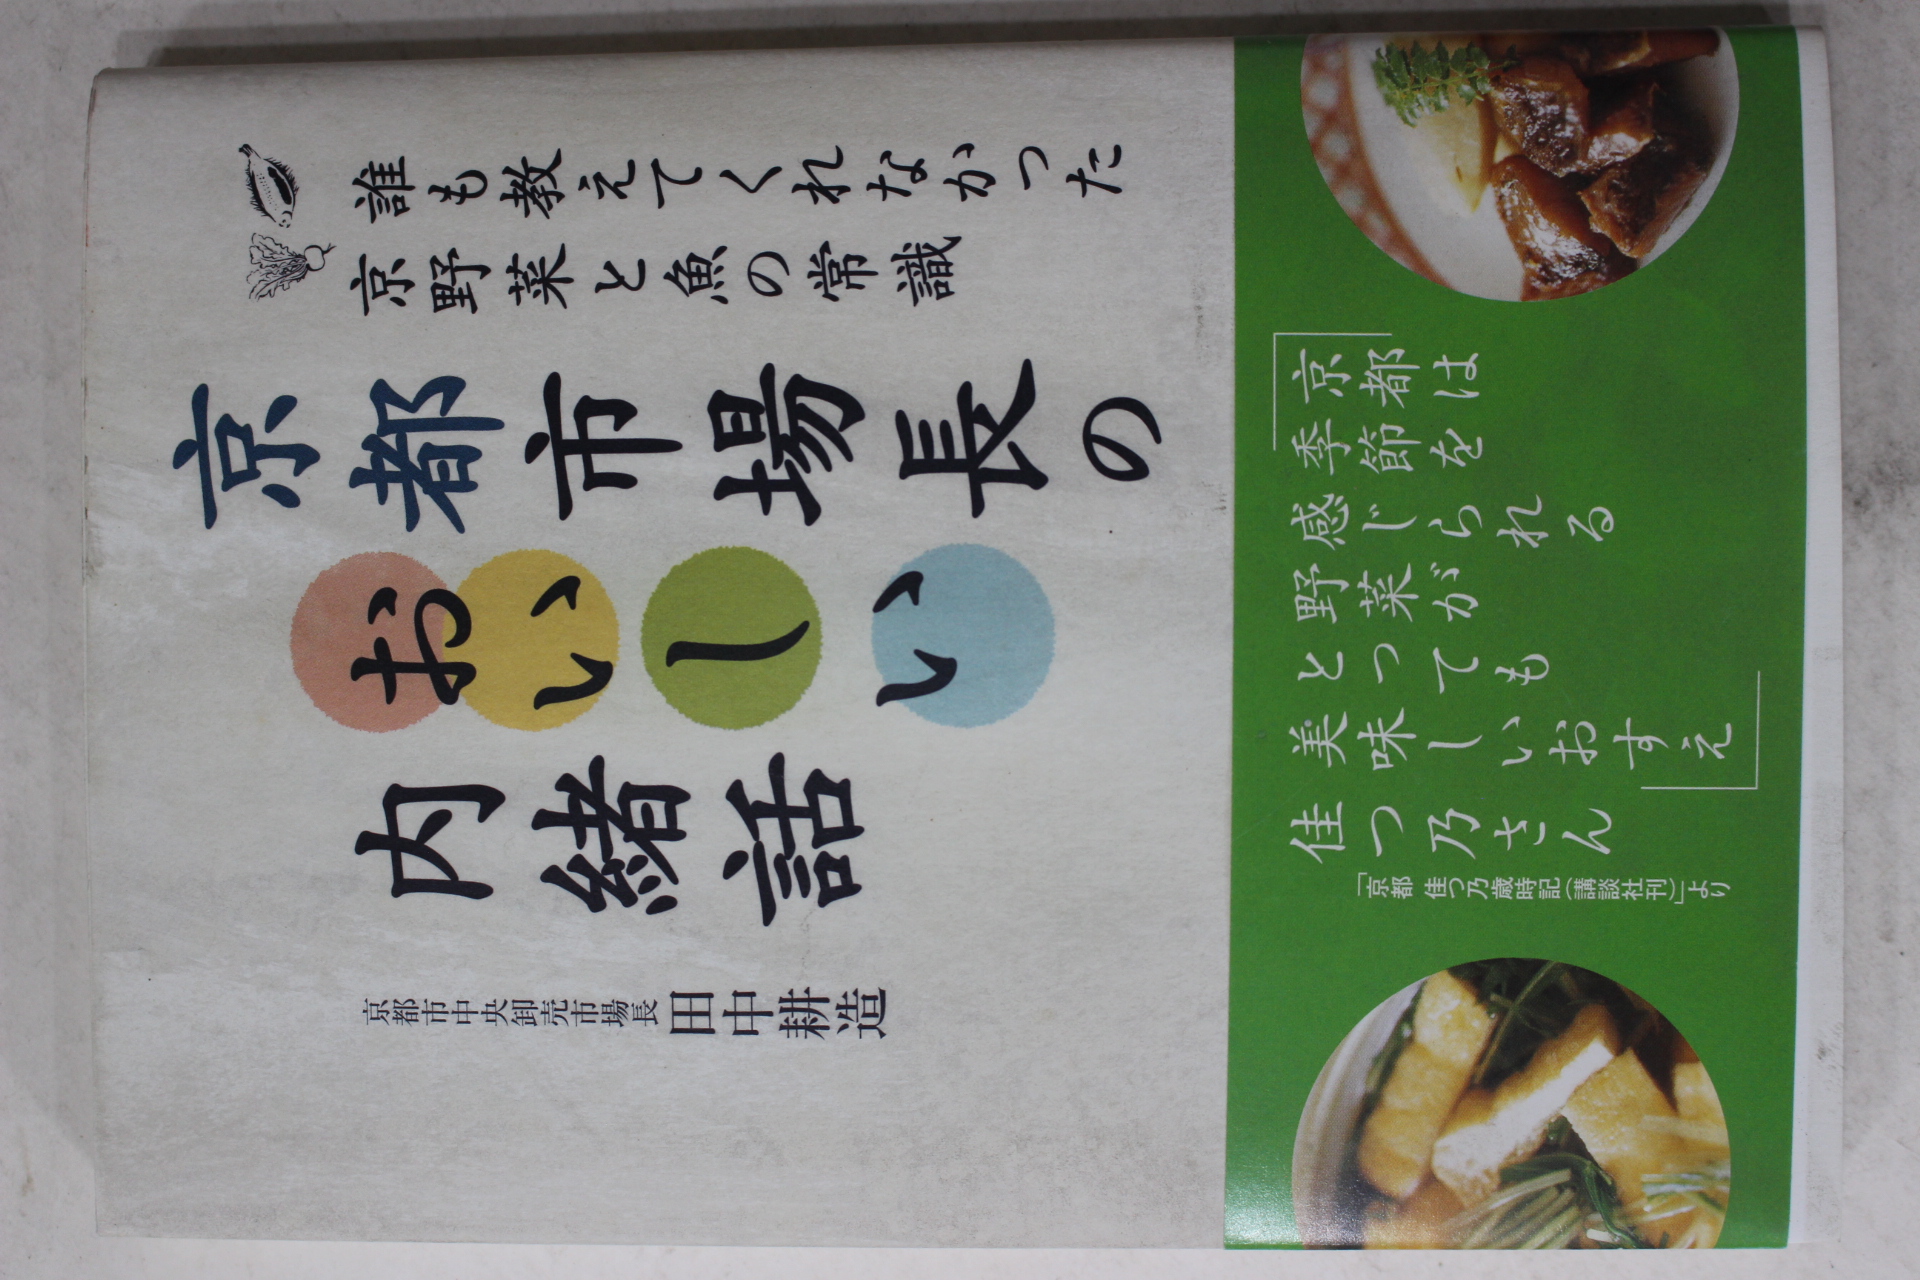 誰も教えてくれなかった
京野菜と魚の常識
京都市場長の
おいしい
内緒話
京都市中央卸売市場長 田中耕造
「京都は
季節を
感じられる
と野菜が
とっても
美味しいおすえ」
佳つ乃さん
「京都 佳つ乃歳時記(講談社刊)」より